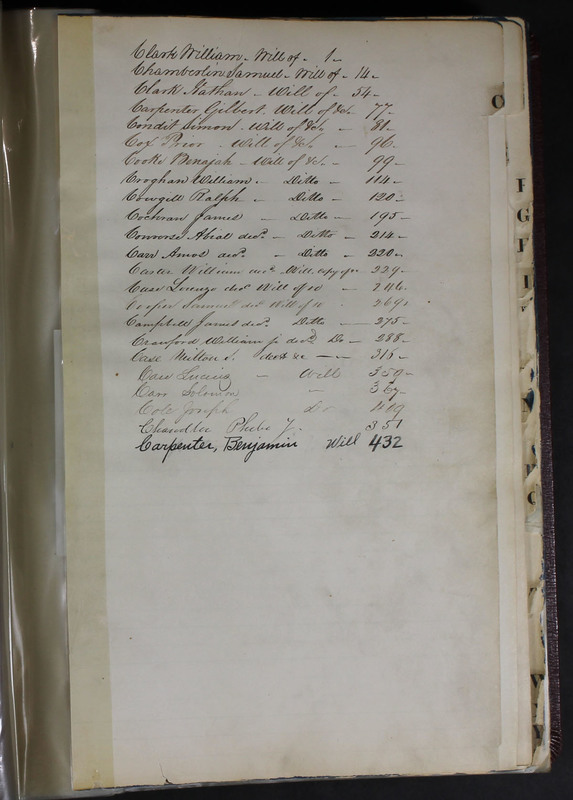 Clark William - Will of - 1 -
Chamberlin Samuel - Will of - 14 -
Clark Nathan - Will of - 54 -
Carpenter Gilbert - Will of &c. 77 -
Condit Simon - Will of &c. - 81 -
Cox Prior - Will of &c. - 96 -
Cooke Benajah - Will of &c. - 99 -
Croghan William - Ditto - 114 -
Cowgill Ralph - Ditto - 120 -
Cochran James - Ditto - 195 -
Converse Abial decd. - Ditto - 214 -
Carr Amos decd. - Ditto - 220 -
Caster William decd. Will copy of 229 -
Case Lorenzo decd. Will of - 246
Cooper Samuel decd. Will of 269
Campbell James decd. Ditto - 275 -
Crawford William jr decd. Do - 288 -
Case Milton - 316 -
Carr Lucius - Will 359 -
Carr Solomon - 367 -
Cole Joseph Do 409
Chandler Phebe Y. 351
Carpenter, Benjamin Will 432
C
F
G
H
I
W
Y